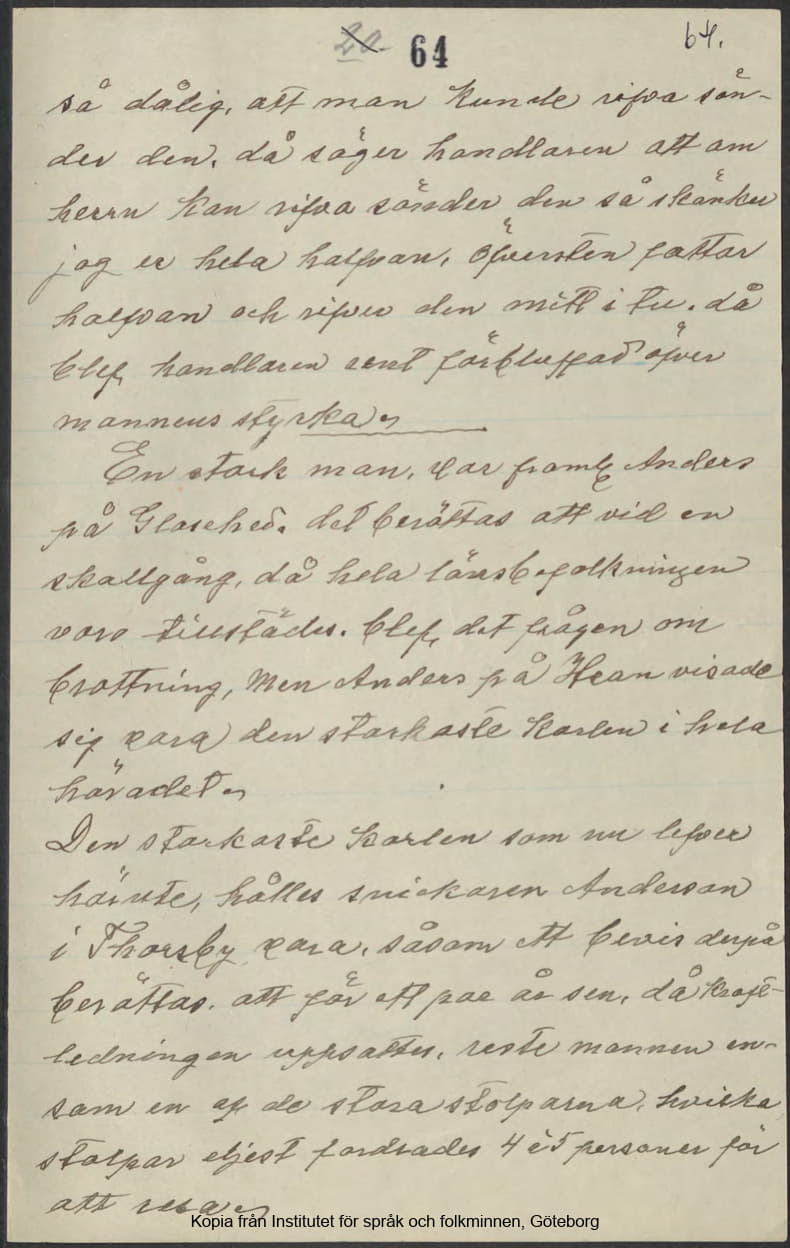 20 64 64.
så dålig, att man kunde rifva sön-
der den, då säger handlaren att om
herrn kan rifva sönder den så skänker
jag er hela halfvan, öfversten fattar
halfvan och rifver den mitt i tu. då
blef handlaren rent förbluffad öfver
mannens styrka,
En stark man, var framl Anders
på Glasehed. det berättas att vid en
skallgång, då hela länsbefolkningen
voro tillstädes. blef, det frågan om
brottning, Men Anders på Hean visade
sig vara den starkaste karlen i hela
häradet,
Den starkaste karlen som nu lefver
härute, hålles snickaren Anderson
i Thorsby vara, såsom ett bevis derpå
berättas. att för ett par år sen, då kraft-
ledningen uppsattes, reste mannen en-
sam en af de stora stolparna, hvilka
stolpar eljest fordrades 4 à 5 personer för
att resa,
Kopia från Institutet för språk och folkminnen, Göteborg